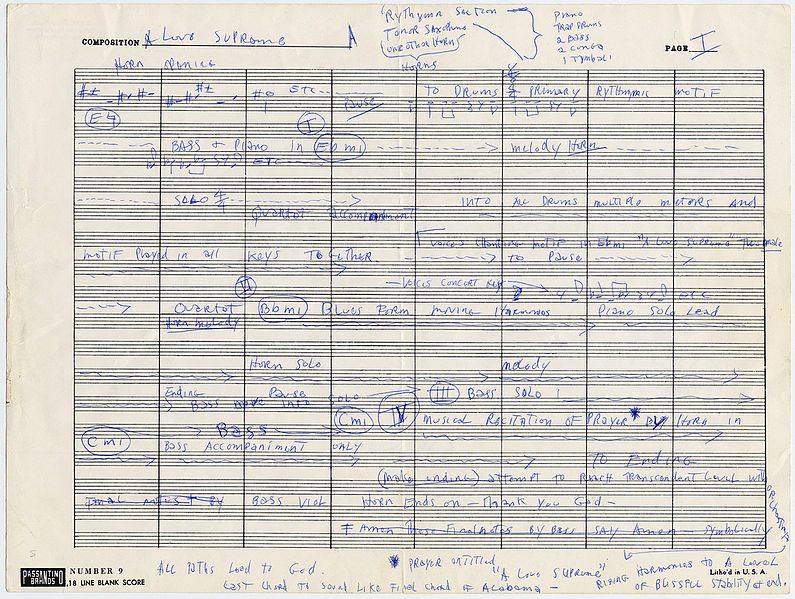 COMPOSITION A Love Supreme
PAGE I
Rythymn Section
Tenor Saxophone
1 other Horn
Piano
Trap Drums
2 Bass
2 Conga
1 Tymbali
Horn
Horns
etc
Pause
To Drums 4/4 Primary Rythmnic motif
E4
I
Bass & Piano in Ebmi
melody Horn
etc
Solo 4/4
Quartet accompaniment
Into all Drums multiple meters and
Voices Chanting motif in Ebmi "A Love Supreme"
motif Played in all Keys Together
to Pause
Voices Concert Key
etc
II
Quartet Bbmi Blues Form moving Harmonies Piano Solo Lead
Horn melody
Horn Solo
melody
Ending Pause
III Bass Solo
Bass move into solo
Cmi IV Musical Recitation of Prayer * by Horn in
Cmi
Bass
Bass Accompaniment only
To Ending
(make ending) attempt to Reach Transcendant Level with
Final notes by Bass Viol Horn Ends on - Thank you God -
Amen These Final notes By Bass Say Amen - Symbolically
ALL Paths Lead to God.
* Prayer entitled "A Love Supreme"
Last chord to sound Like Final chord of Alabama -
Rising Harmonies to A Level
of Blissful Stability at end.
PASSANTINO
BRANDS
NUMBER 9
18 LINE BLANK SCORE
Litho'd in U.S.A.